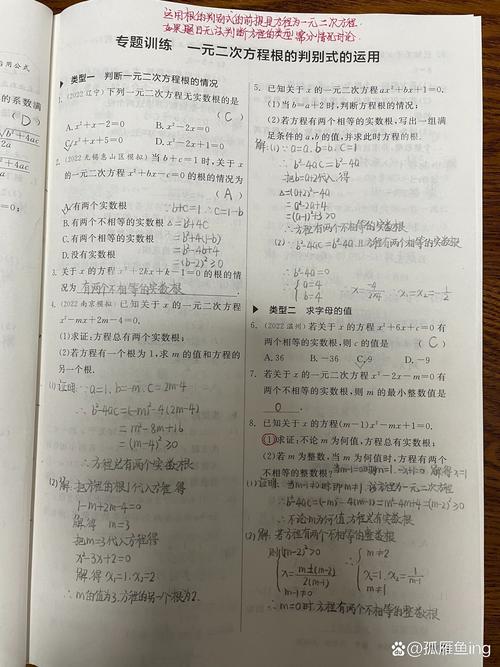 运用根的判别式的前提是方程为一元二次方程.
如果题目无法判断方程的类型需分情况讨论.
专题训练 一元二次方程根的判别式的运用
类型一 判断一元二次方程根的情况
1. (2022辽宁)下列一元二次方程无实数根的是
( C )
A. x²+x-2=0 B. x²-2x=0
C. x²+x+5=0 D. x²-2x+1=0
2. (2022无锡惠山区模拟)当b+c=1时,关于x
的一元二次方程x²+bx-c=0的根的情况为
( A )
A. 有两个实数根 ∵b+c=1 ∴c=1-b
B. 有两个不相等的实数根 △=b²+4c
C. 有两个相等的实数根 =b²+4(1-b)
D. 没有实数根 =b²-4b+4
=(b-2)²≥0
3. 关于x的方程x²+2kx+k-1=0的根的情
况为 有两个不相等的实数根
4. (2022南京模拟)已知关于x的一元二次方程
x²-mx+2m-4=0.
(1)求证:方程总有两个实数根;
(2)若方程有一个根为1,求m的值和方程的
另一个根.
(1)证明:∵a=1. b=-m. c=2m-4
∴b²-4ac=(-m)²-4(2m-4)
=m²-8m+16
=(m-4)²≥0
∴方程总有两个实数根
(2)解:把方程的根1代入方程得
1-m+2m-4=0
解得 m=3
把m=3代入方程得
x²-3x+2=0
解得x₁=1. x₂=2
∴m的值为3.方程的另一个根为2.
5. 已知关于x的一元二次方程ax²+bx+1=0.
(1)当b=a+2时,判断方程根的情况;
(2)若方程有两个相等的实数根,写出一组满
足条件的a,b的值,并求此时方程的根.
解:(1)∵a=a. b=b. c=1
∴b²-4ac=b²-4a
把b=a+2代入得
△=(a+2)²-4a
∴方程有两个不相等的实数根
∴b²-4a=0
类型二 求字母的值
6. (2022温州)若关于x的方程x²+6x+c=0有
两个相等的实数根,则c的值是 ( C )
A. 36 B. -36 C. 9 D. -9
7. 若关于x的一元二次方程x²-2x-m=0有
两个不相等的实数根,则m的最小整数值是
0 .
8. 已知关于x的方程(m-1)x²-mx+1=0.
(1)求证:不论m为何值,方程总有实数根;
(2)若m为整数,当m为何值时,方程有两个
不相等的整数根?
∴不论m为何值方程总有实数根
(2)解:若方程有两个不相等的整数根
∴m=0时方程有两个不相等的整数根
@孤雁鱼ing